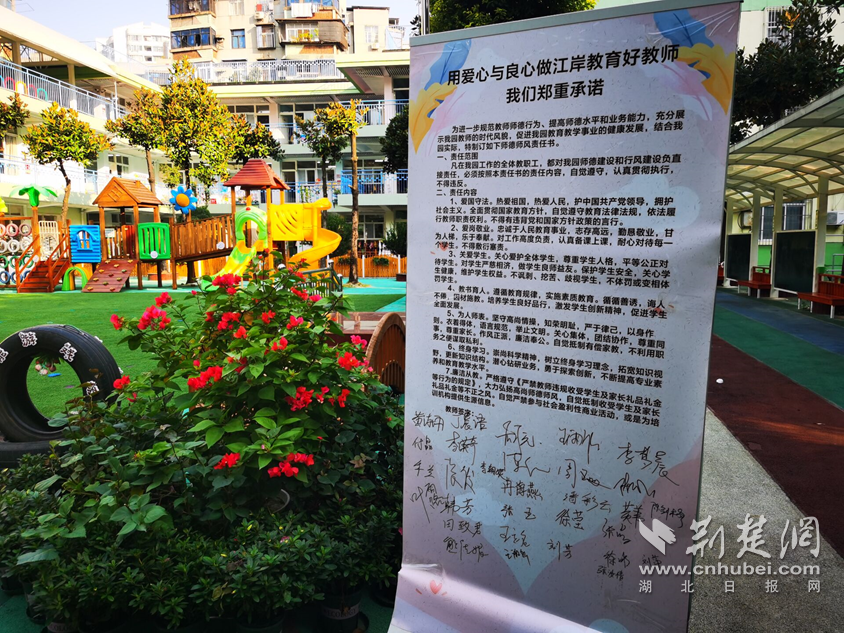 用爱心与良心做江岸教育好教师
我们郑重承诺
为进一步规范教师师德行为、提高师德水平和业务能力，充分展
示我园教师的时代风貌，促进我园教育教学事业的健康发展，结合我
园实际，特制订如下师德师风责任书。
一、责任范围
凡在我园工作的全体教职工，都对我园师德建设和行风建设负直
接责任，必须按照本责任书的责任内容，自觉遵守，认真贯彻执行，
不得违反。
二、责任内容
1、爱国守法。热爱祖国，热爱人民，拥护中国共产党领导，拥护
社会主义。全面贯彻国家教育方针，自觉遵守教育法律法规，依法履
行教师职责权利，不得有违背党和国家方针政策的言行。
2、爱岗敬业。忠诚于人民教育事业，志存高远，勤恳敬业，甘
为人梯，乐于奉献。对工作高度负责，认真备课上课，耐心对待每一
个学生。不得敷衍塞责。
3、关爱学生。关心爱护全体学生，尊重学生人格，平等公正对
待学生。对学生严慈相济，做学生良师益友。保护学生安全，关心学
生健康，维护学生权益。不讽刺、挖苦、歧视学生，不体罚或变相体
罚学生。
4、教书育人。遵循教育规律，实施素质教育。循循善诱，诲人
不倦，因材施教。培养学生良好品行，激发学生创新精神，促进学生
全面发展。
5、为人师表。坚守高尚情操，知荣明耻，严于律己，以身作
则。衣着得体，语言规范，举止文明。关心集体，团结协作，尊重同
事，尊重家长。作风正派，廉洁奉公。自觉抵制有偿家教，不利用职
务之便谋取私利。
6、终身学习。崇尚科学精神，树立终身学习理念，拓宽知识视
野，更新知识结构。潜心钻研业务，勇于探索创新，不断提高专业素
养和教育教学水平。
7、廉洁从教。严格遵守《严禁教师违规收受学生及家长礼品礼金
等行为的规定》，大力弘扬高尚师德师风，自觉抵制收受学生及家长
礼品礼金等不正之风，自觉严禁参与社会盈利性商业活动，或是为培
训机构提供生源信息。
教师签字：
李梦晨
冉
张玉
徐莹
韩芳
田致君
刘芳
荆楚网
www.cnhubei.com
湖北日报网